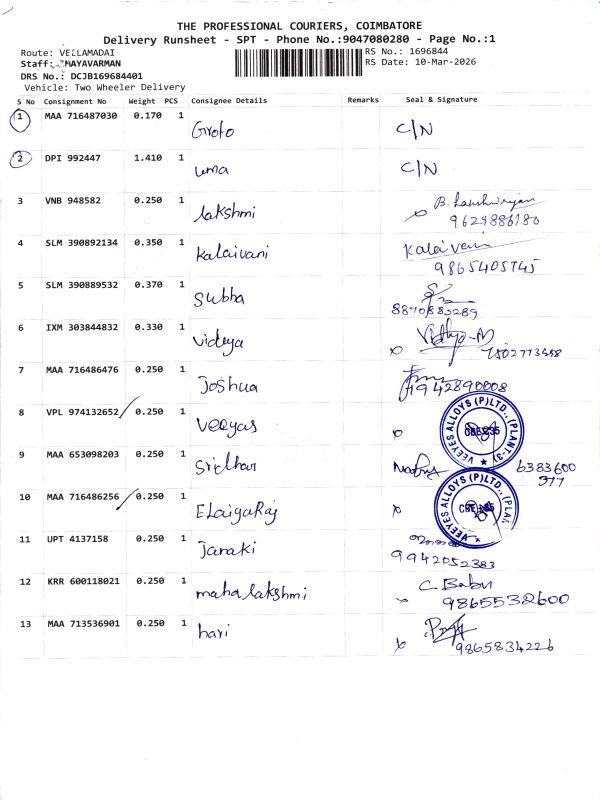 THE PROFESSIONAL COURIERS, COIMBATORE
Delivery Runsheet - SPT - Phone No.:9047080280 - Page No.:1
Route: VELLAMADAI
RS No.: 1696844
Staff: MAYAVARMAN
RS Date: 10-Mar-2026
DRS No.: DCJB169684401
Vehicle: Two Wheeler Delivery
S No Consignment No Weight PCS Consignee Details Remarks Seal & Signature
1 MAA 716487030 0.170 1 Grofo C/N
2 DPI 992447 1.410 1 uma C/N
3 VNB 948582 0.250 1 lakshmi B.
9629886180
4 SLM 390892134 0.350 1 Kalaivani Kalaivani
9865405745
5 SLM 390889532 0.370 1 Subha
8870883289
6 IXM 303844832 0.330 1 vidyya Vidhya-M
7502773558
7 MAA 716486476 0.250 1 Joshua
9942890008
8 VPL 974132652 0.250 1 Veeyas
VEEYES ALLOYS (P)LTD., (PLANT-3)
9 MAA 653098203 0.250 1 Sridhar 6383600
377
10 MAA 716486256 0.250 1 ELaiyaRaj
VEEYES ALLOYS (P)LTD., (PLAN
11 UPT 4137158 0.250 1 Janaki
9942052383
12 KRR 600118021 0.250 1 mahalakshmi C. Babu
9865532600
13 MAA 713536901 0.250 1 hari
9865834226